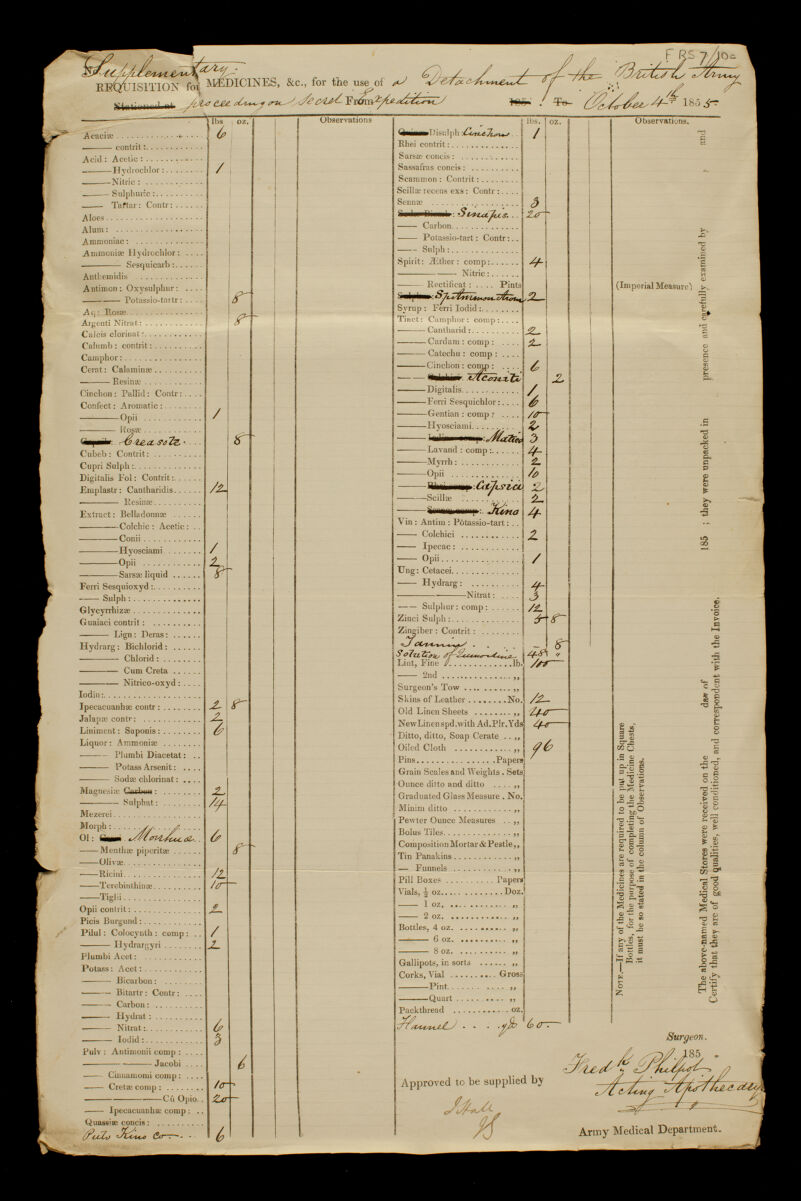 FRS 7/10c
Supplementary
REQUISITION for MEDICINES, &c., for the use of a Detachment of the British Army
Stationed at proceeding on Secret From Expedition To October 4th 1855
lbs oz. Observations
Acaciæ 6
contrit:
Acid: Acetic:
Hydrochlor: 1
Nitric:
Sulphuric:
Tartar: Contr:
Aloes
Alum:
Ammoniac:
Ammoniæ Hydrochlor:
Sesquicarb:
Anthemidis
Antimon: Oxysulphur:
Potassio-tartr: 8
Aq: Rosæ
Argenti Nitrat: 8
Calcis clorinat:
Calumb: contrit:
Camphor:
Cerat: Calaminæ
Resinæ
Cinchon: Pallid: Contr:
Confect: Aromatic:
Opii 1
Rosæ
Creasote 8
Cubeb: Contrit:
Cupri Sulph:
Digitalis Fol: Contrit:
Emplastr: Cantharidis 12
Resinæ
Extract: Belladonnæ
Colchic: Acetic:
Conii
Hyosciami 1
Opii 2
Sarsæ liquid 8
Ferri Sesquioxyd:
Sulph:
Glycyrrhizæ
Guaiaci contrit:
Lign: Deras:
Hydrarg: Bichlorid:
Chlorid:
Cum Creta
Nitrico-oxyd:
Iodin:
Ipecacuanhæ contr: 2 8
Jalapæ contr: 2
Liniment: Saponis: 6
Liquor: Ammoniæ
Plumbi Diacetat:
Potass Arsenit:
Sodæ chlorinat:
Magnesiæ Carbon: 2
Sulphat: 14
Mezerei
Morph:
Ol: Morrhuæ 6
Menthæ piperitæ 8
Olivæ
Ricini 12
Terebinthinæ 10
Tiglii
Opii contrit: 2
Picis Burgund:
Pilul: Colocynth: comp: 1
Hydrargyri 2
Plumbi Acet:
Potass: Acet:
Bicarbon:
Bitartr: Contr:
Carbon:
Hydrat:
Nitrat: 6
Iodid: 3
Pulv: Antimonii comp:
Jacobi 6
Cinnamomi comp:
Cretæ comp: 10
Cû Opio 20
Ipecacuanhæ comp:
Quassiæ concis:
Pulv Kino Co 6
lbs. oz. Observations.
Disulph Cinchon 1
Rhei contrit:
Sarsæ concis:
Sassafras concis:
Scammon: Contrit:
Scillæ recens exs: Contr:
Sennæ 3
Sinapis 20
Carbon
Potassio-tart: Contr:
Sulph:
Spirit: Æther: comp: 4
Nitric:
Rectificat: Pints (Imperial Measure)
Spt Ammon Arom 2
Syrup: Ferri Iodid:
Tinct: Camphor: comp:
Cantharid: 2
Cardam: comp: 2
Catechu: comp:
Cinchon: comp: 6
Aconiti 2
Digitalis 1
Ferri Sesquichlor: 6
Gentian: comp: 10
Hyosciami 2
Matico 3
Lavand: comp: 4
Myrrh: 2
Opii 10
Capsici 2
Scillæ 2
Kino 4
Vin: Antim: Potassio-tart:
Colchici 2
Ipecac:
Opii 1
Ung: Cetacei
Hydrarg: 4
Nitrat: 3
Sulphur: comp: 12
Zinci Sulph: 5 8
Zingiber: Contrit:
Tannin – 8
Solution of 48 "
Lint, Fine lb. 100
2nd ,,
Surgeon's Tow ,,
Skins of Leather No. 12
Old Linen Sheets ,, 40
New Linen spd. with Ad. Plr. Yds 40
Ditto, ditto, Soap Cerate ,,
Oiled Cloth ,, 96
Pins Papers
Grain Scales and Weights. Sets
Ounce ditto and ditto ,,
Graduated Glass Measure. No.
Minim ditto ,,
Pewter Ounce Measures ,,
Bolus Tiles ,,
Composition Mortar & Pestle ,,
Tin Panakins ,,
Funnels ,,
Pill Boxes Papers
Vials, ½ oz Doz.
1 oz. ,,
2 oz. ,,
Bottles, 4 oz. ,,
6 oz. ,,
8 oz. ,,
Gallipots, in sorts ,,
Corks, Vial Gross
Pint ,,
Quart ,,
Packthread oz.
Flannel yds 60
Approved to be supplied by
J Hall
NOTE.—If any of the Medicines are required to be put up in Square
Bottles, for the purpose of completing the Medicine Chests,
it must be so stated in the column of Observations.
The above-named Medical Stores were received on the day of 185 ; they were unpacked in presence and carefully examined by , and
Certify that they are of good qualities, well conditioned, and correspondent with the Invoice.
Surgeon.
185
Fredk Philpot
Acting Apothecary
Army Medical Department.